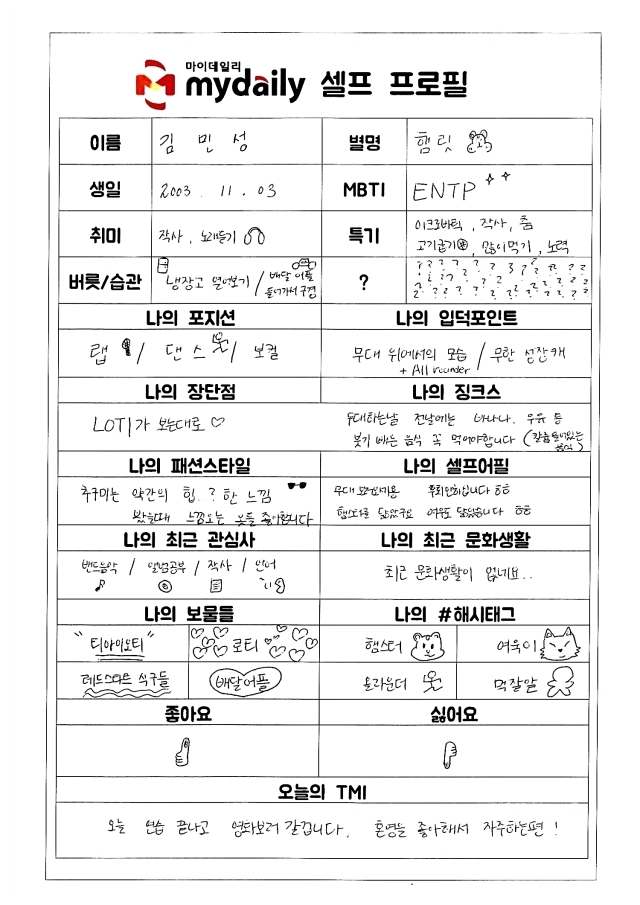 마이데일리
mydaily 셀프 프로필
이름 김 민 성 별명 햄릿
생일 2003. 11. 03 MBTI ENTP
취미 작사, 노래듣기 특기 아크로바틱, 작사, 춤
고기굽기, 많이먹기, 노력
버릇/습관 냉장고 열어보기 / 배달 어플
들어가서 구경
?
나의 포지션 나의 입덕포인트
랩 / 댄스 / 보컬 무대 위에서의 모습 / 무한 성장캐
+ All rounder
나의 장단점 나의 징크스
LOTI가 보는대로 ♡ 무대하는날 전날에는 바나나, 우유 등
붓기 빼는 음식 꼭 먹어야합니다 (칼륨들어있는
음식)
나의 패션스타일 나의 셀프어필
추구미는 약간의 힙..? 한 느낌
봤을때 느낌오는 옷들 좋아합니다
무대
햄스터를 닮았구요 여우도 닮았습니다 ㅎㅎ
나의 최근 관심사 나의 최근 문화생활
밴드음악 / 앨범공부 / 작사 / 언어 최근 문화생활이 없네요..
나의 보물들 나의 #해시태그
"티아이오티" 로티 햄스터 여욱이
레드스타트 식구들 배달어플 올라운더 먹잘알
좋아요 싫어요
오늘의 TMI
오늘 연습 끝나고 영화보러 갈겁니다. 혼영을 좋아해서 자주하는편!